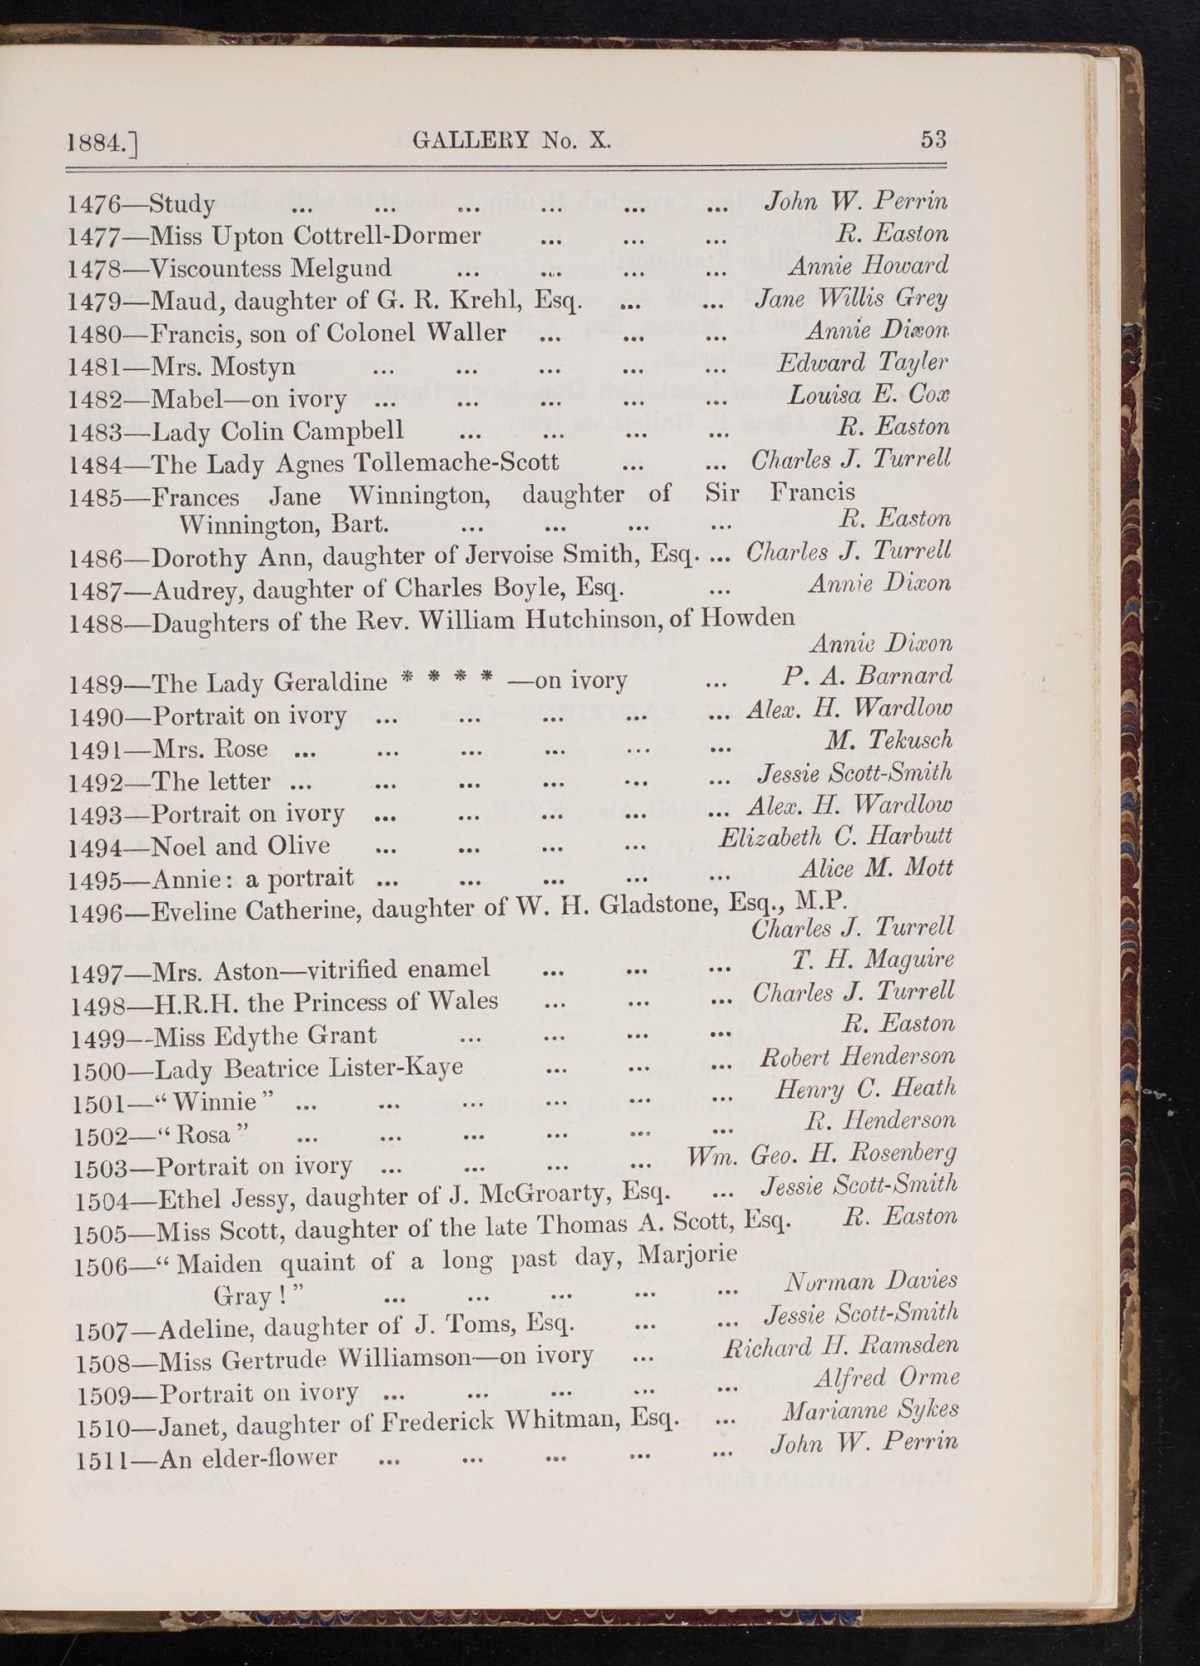 1884.] GALLERY No. X. 53
1476—Study ... ... ... ... ... ... John W. Perrin
1477—Miss Upton Cottrell-Dormer ... ... ... R. Easton
1478—Viscountess Melgund ... ... ... ... Annie Howard
1479—Maud, daughter of G. R. Krehl, Esq. ... ... Jane Willis Grey
1480—Francis, son of Colonel Waller ... ... ... Annie Dixon
1481—Mrs. Mostyn ... ... ... ... ... Edward Tayler
1482—Mabel—on ivory ... ... ... ... ... Louisa E. Cox
1483—Lady Colin Campbell ... ... ... ... R. Easton
1484—The Lady Agnes Tollemache-Scott ... ... Charles J. Turrell
1485—Frances Jane Winnington, daughter of Sir Francis
Winnington, Bart. ... ... ... ... R. Easton
1486—Dorothy Ann, daughter of Jervoise Smith, Esq. ... Charles J. Turrell
1487—Audrey, daughter of Charles Boyle, Esq. ... Annie Dixon
1488—Daughters of the Rev. William Hutchinson, of Howden
Annie Dixon
1489—The Lady Geraldine * * * * —on ivory ... P. A. Barnard
1490—Portrait on ivory ... ... ... ... ... Alex. H. Wardlow
1491—Mrs. Rose ... ... ... ... ... ... M. Tekusch
1492—The letter ... ... ... ... ... ... Jessie Scott-Smith
1493—Portrait on ivory ... ... ... ... ... Alex. H. Wardlow
1494—Noel and Olive ... ... ... ... Elizabeth C. Harbutt
1495—Annie: a portrait ... ... ... ... ... Alice M. Mott
1496—Eveline Catherine, daughter of W. H. Gladstone, Esq., M.P.
Charles J. Turrell
1497—Mrs. Aston—vitrified enamel ... ... ... T. H. Maguire
1498—H.R.H. the Princess of Wales ... ... ... Charles J. Turrell
1499—Miss Edythe Grant ... ... ... ... R. Easton
1500—Lady Beatrice Lister-Kaye ... ... ... Robert Henderson
1501—“Winnie” ... ... ... ... ... ... Henry C. Heath
1502—“Rosa” ... ... ... ... ... ... R. Henderson
1503—Portrait on ivory ... ... ... ... Wm. Geo. H. Rosenberg
1504—Ethel Jessy, daughter of J. McGroarty, Esq. ... Jessie Scott-Smith
1505—Miss Scott, daughter of the late Thomas A. Scott, Esq. R. Easton
1506—“Maiden quaint of a long past day, Marjorie
Gray!” ... ... ... ... ... Norman Davies
1507—Adeline, daughter of J. Toms, Esq. ... ... Jessie Scott-Smith
1508—Miss Gertrude Williamson—on ivory ... Richard H. Ramsden
1509—Portrait on ivory ... ... ... ... ... Alfred Orme
1510—Janet, daughter of Frederick Whitman, Esq. ... Marianne Sykes
1511—An elder-flower ... ... ... ... ... John W. Perrin